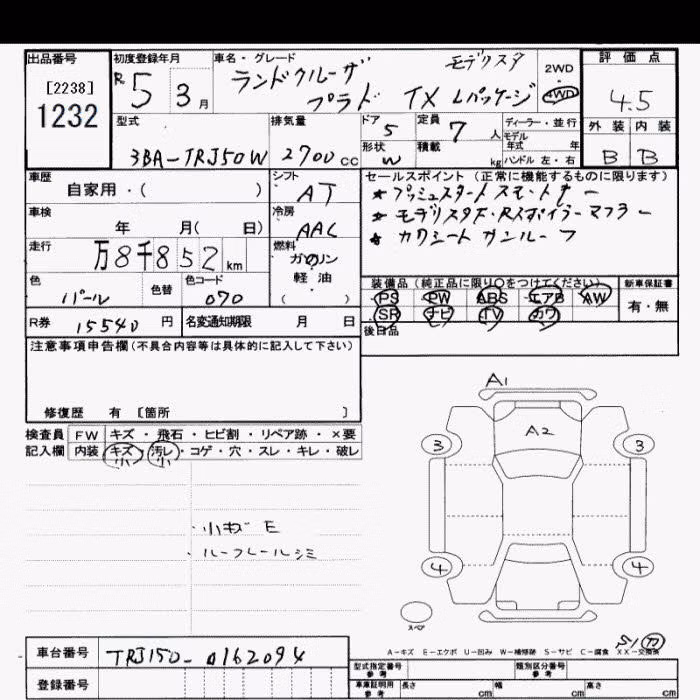 出品番号
[2238]
1232
初度登録年月
R 5 3月
車名・グレード
ランドクルーザ モデリスタ
プラド TX Lパッケージ
2WD
4WD
評価点
4.5
外装 内装
B B
型式
3BA-TRJ150W
排気量
2700cc
ドア
5
形状
W
定員
7人
積載
kg
ディーラー・並行
モデル年式 年
ハンドル 左・右
車歴
自家用・( )
シフト
AT
車検
年 月( 日)
冷房
AAC
走行
万8千852km
燃料
ガソリン
軽油
( )
色
パール
色替
色コード
070
R券
15540円
名変通知期限 月 日
セールスポイント(正常に機能するものに限ります)
★プッシュスタート スマートキー
★モデリスタF・Rスポイラー マフラー
★カワシート サンルーフ
装備品(純正品に限り○をつけてください)
PS PW ABS エアB AW
SR ナビ TV カワ
新車保証書
有・無
後日品
注意事項申告欄(不具合内容等は具体的に記入して下さい)
修復歴 有 [箇所 ]
検査員
記入欄
FW キズ・飛石・ヒビ割・リペア跡・×要
内装 キズ・汚レ・コゲ・穴・スレ・キレ・破レ
小 小
・小キズ E
・ルーフレールシミ
A1
A2
3 3
4 4
スペア
A-キズ E-エクボ U-凹み W-補修跡 S-サビ C-腐食 XX-交換済
車台番号
TRJ150-0162094
登録番号
型式指定番号
参考
類別区分番号
参考
車庫証明用
参考
長さ cm 幅 cm 高さ cm